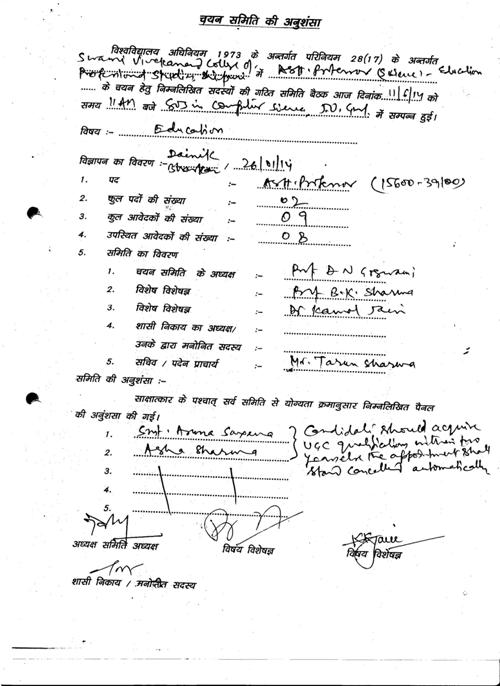 चयन समिति की अनुशंसा
विश्वविद्यालय अधिनियम 1973 के अन्तर्गत परिनियम 28(17) के अन्तर्गत
Swami Vivekanand College of में Asst. Professor (Science) - Education
Professional Studies
...... के चयन हेतु निम्नलिखित सदस्यों की गठित समिति बैठक आज दिनांक 11/6/14 को
समय 11 AM बजे SOS in Computer Science, J.U. Gwl. में सम्पन्न हुई।
विषय :- Education
विज्ञापन का विवरण :- Dainik Bhaskar / 26/01/14
1. पद :- Asst. Professor (15600-39100)
2. कुल पदों की संख्या :- 02
3. कुल आवेदकों की संख्या :- 09
4. उपस्थित आवेदकों की संख्या :- 08
5. समिति का विवरण
1. चयन समिति के अध्यक्ष :- Prof D N Goswami
2. विशेष विशेषज्ञ :- Prof B.K. Sharma
3. विशेष विशेषज्ञ :- Dr Kamal Jain
4. शासी निकाय का अध्यक्ष/ :-
उनके द्वारा मनोनित सदस्य :-
5. सचिव / पदेन प्राचार्य :- Mr. Tarun Sharma
समिति की अनुशंसा :-
साक्षात्कार के पश्चात् सर्व समिति से योग्यता क्रमानुसार निम्नलिखित पैनल
की अनुंशसा की गई।
1. Smt. Aruna Saxena
2. Asha Sharma
3.
4.
5.
Candidate should acquire
UGC qualification within two
years else the appointment shall
stand cancelled automatically
अध्यक्ष समिति अध्यक्ष विषय विशेषज्ञ विषय विशेषज्ञ
शासी निकाय / मनोनीत सदस्य